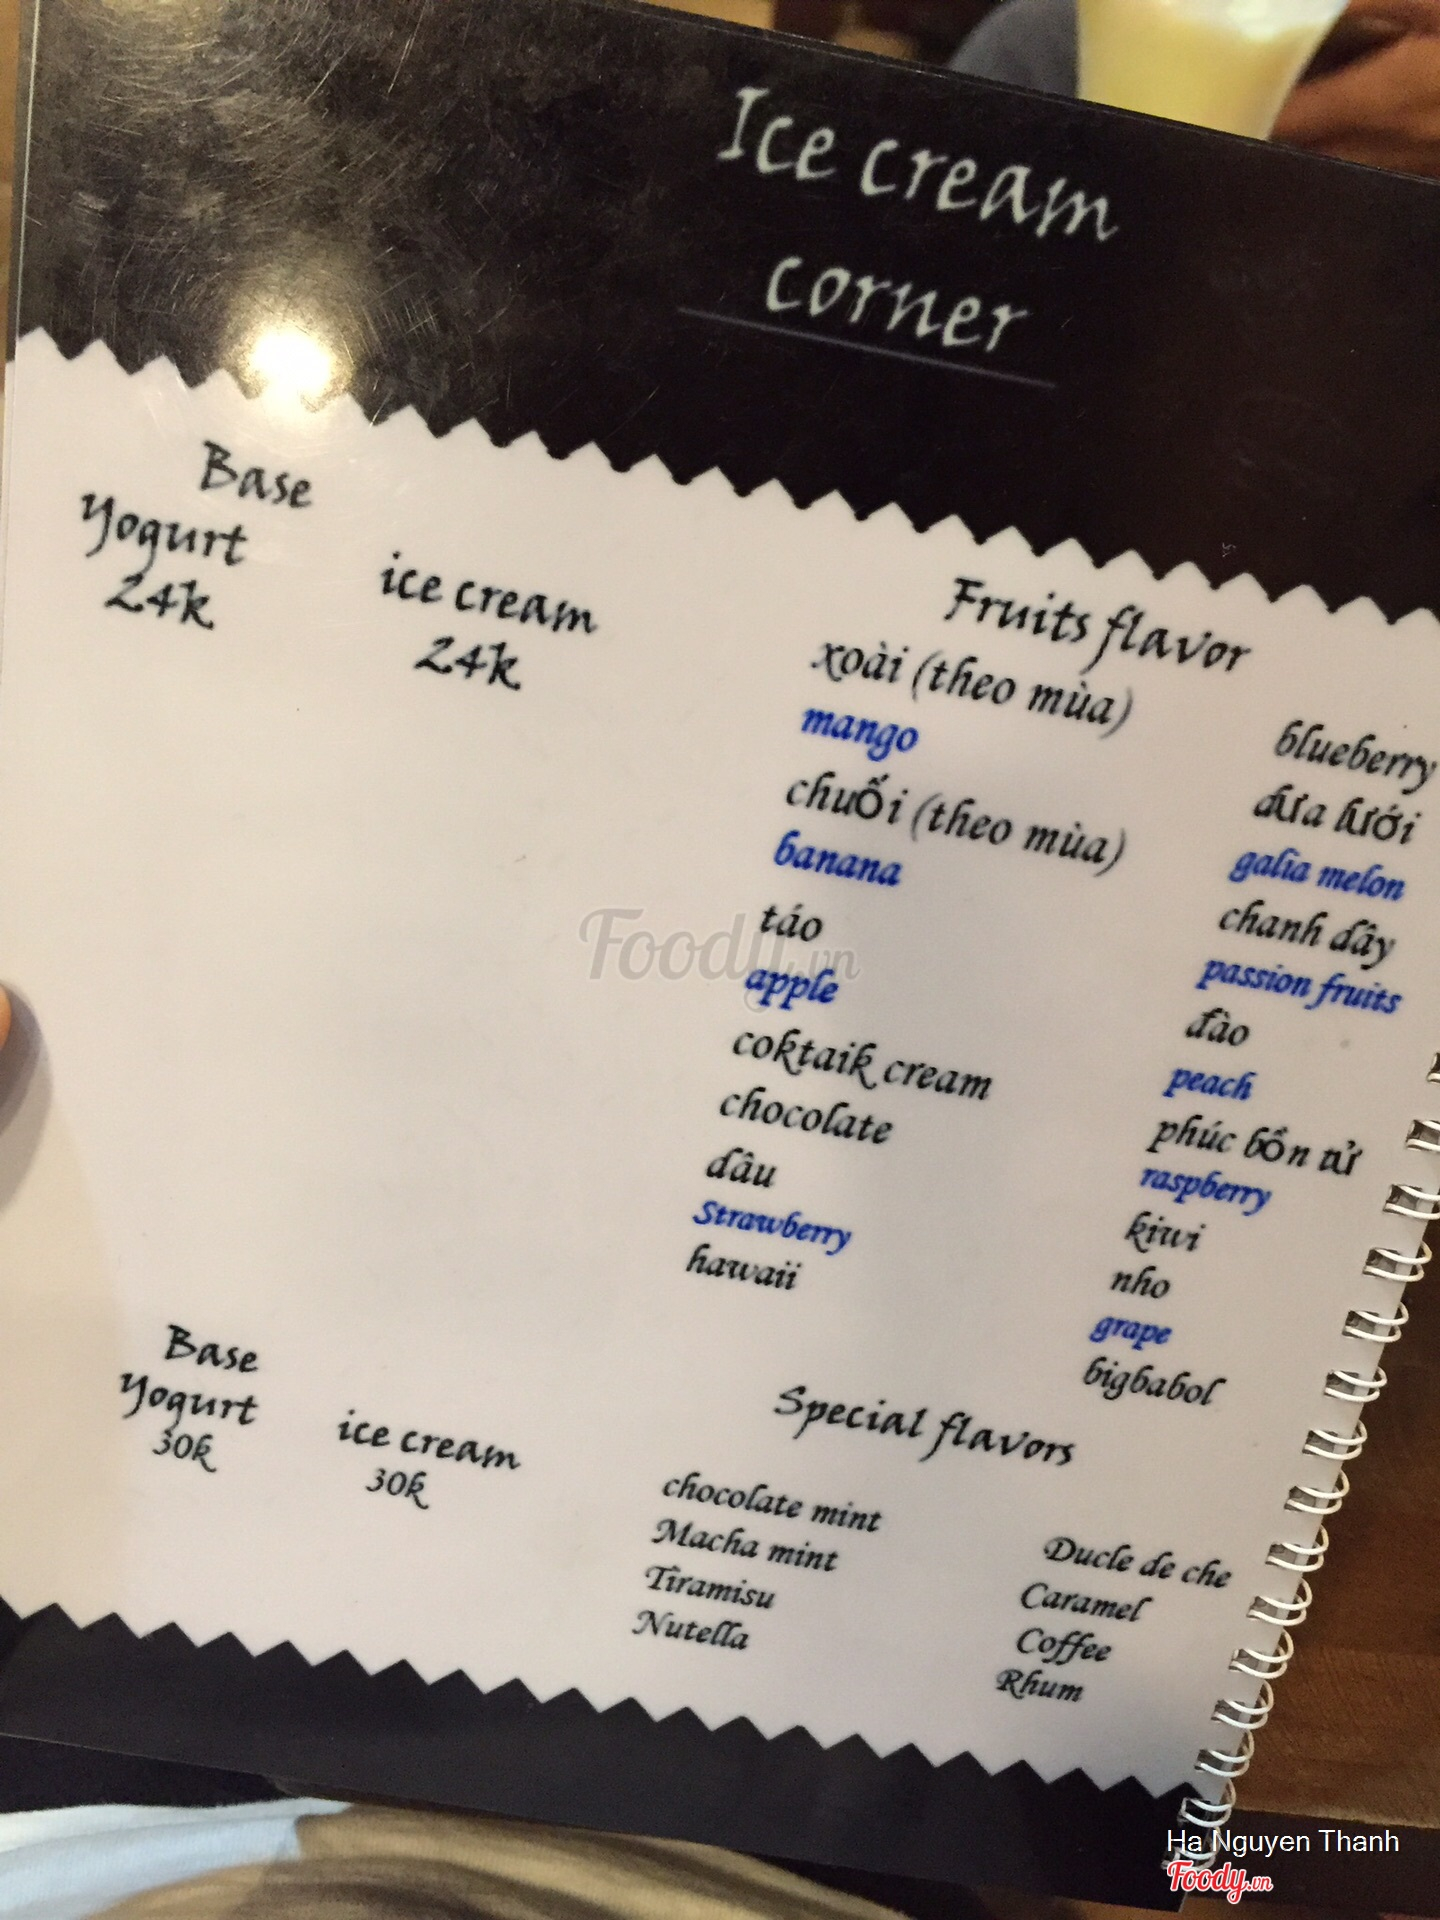 Ice cream
corner
Base
Yogurt
24k
ice cream
24k
Fruits flavor
xoài (theo mùa)
mango
chuối (theo mùa)
banana
táo
apple
coktaik cream
chocolate
dâu
Strawberry
hawaii
blueberry
dưa lưới
galia melon
chanh dây
passion fruits
đào
peach
phúc bồn tử
raspberry
kiwi
nho
grape
bigbabol
Base
Yogurt
30k
ice cream
30k
Special flavors
chocolate mint
Macha mint
Tiramisu
Nutella
Ducle de che
Caramel
Coffee
Rhum
Foody.vn
Ha Nguyen Thanh
Foody.vn